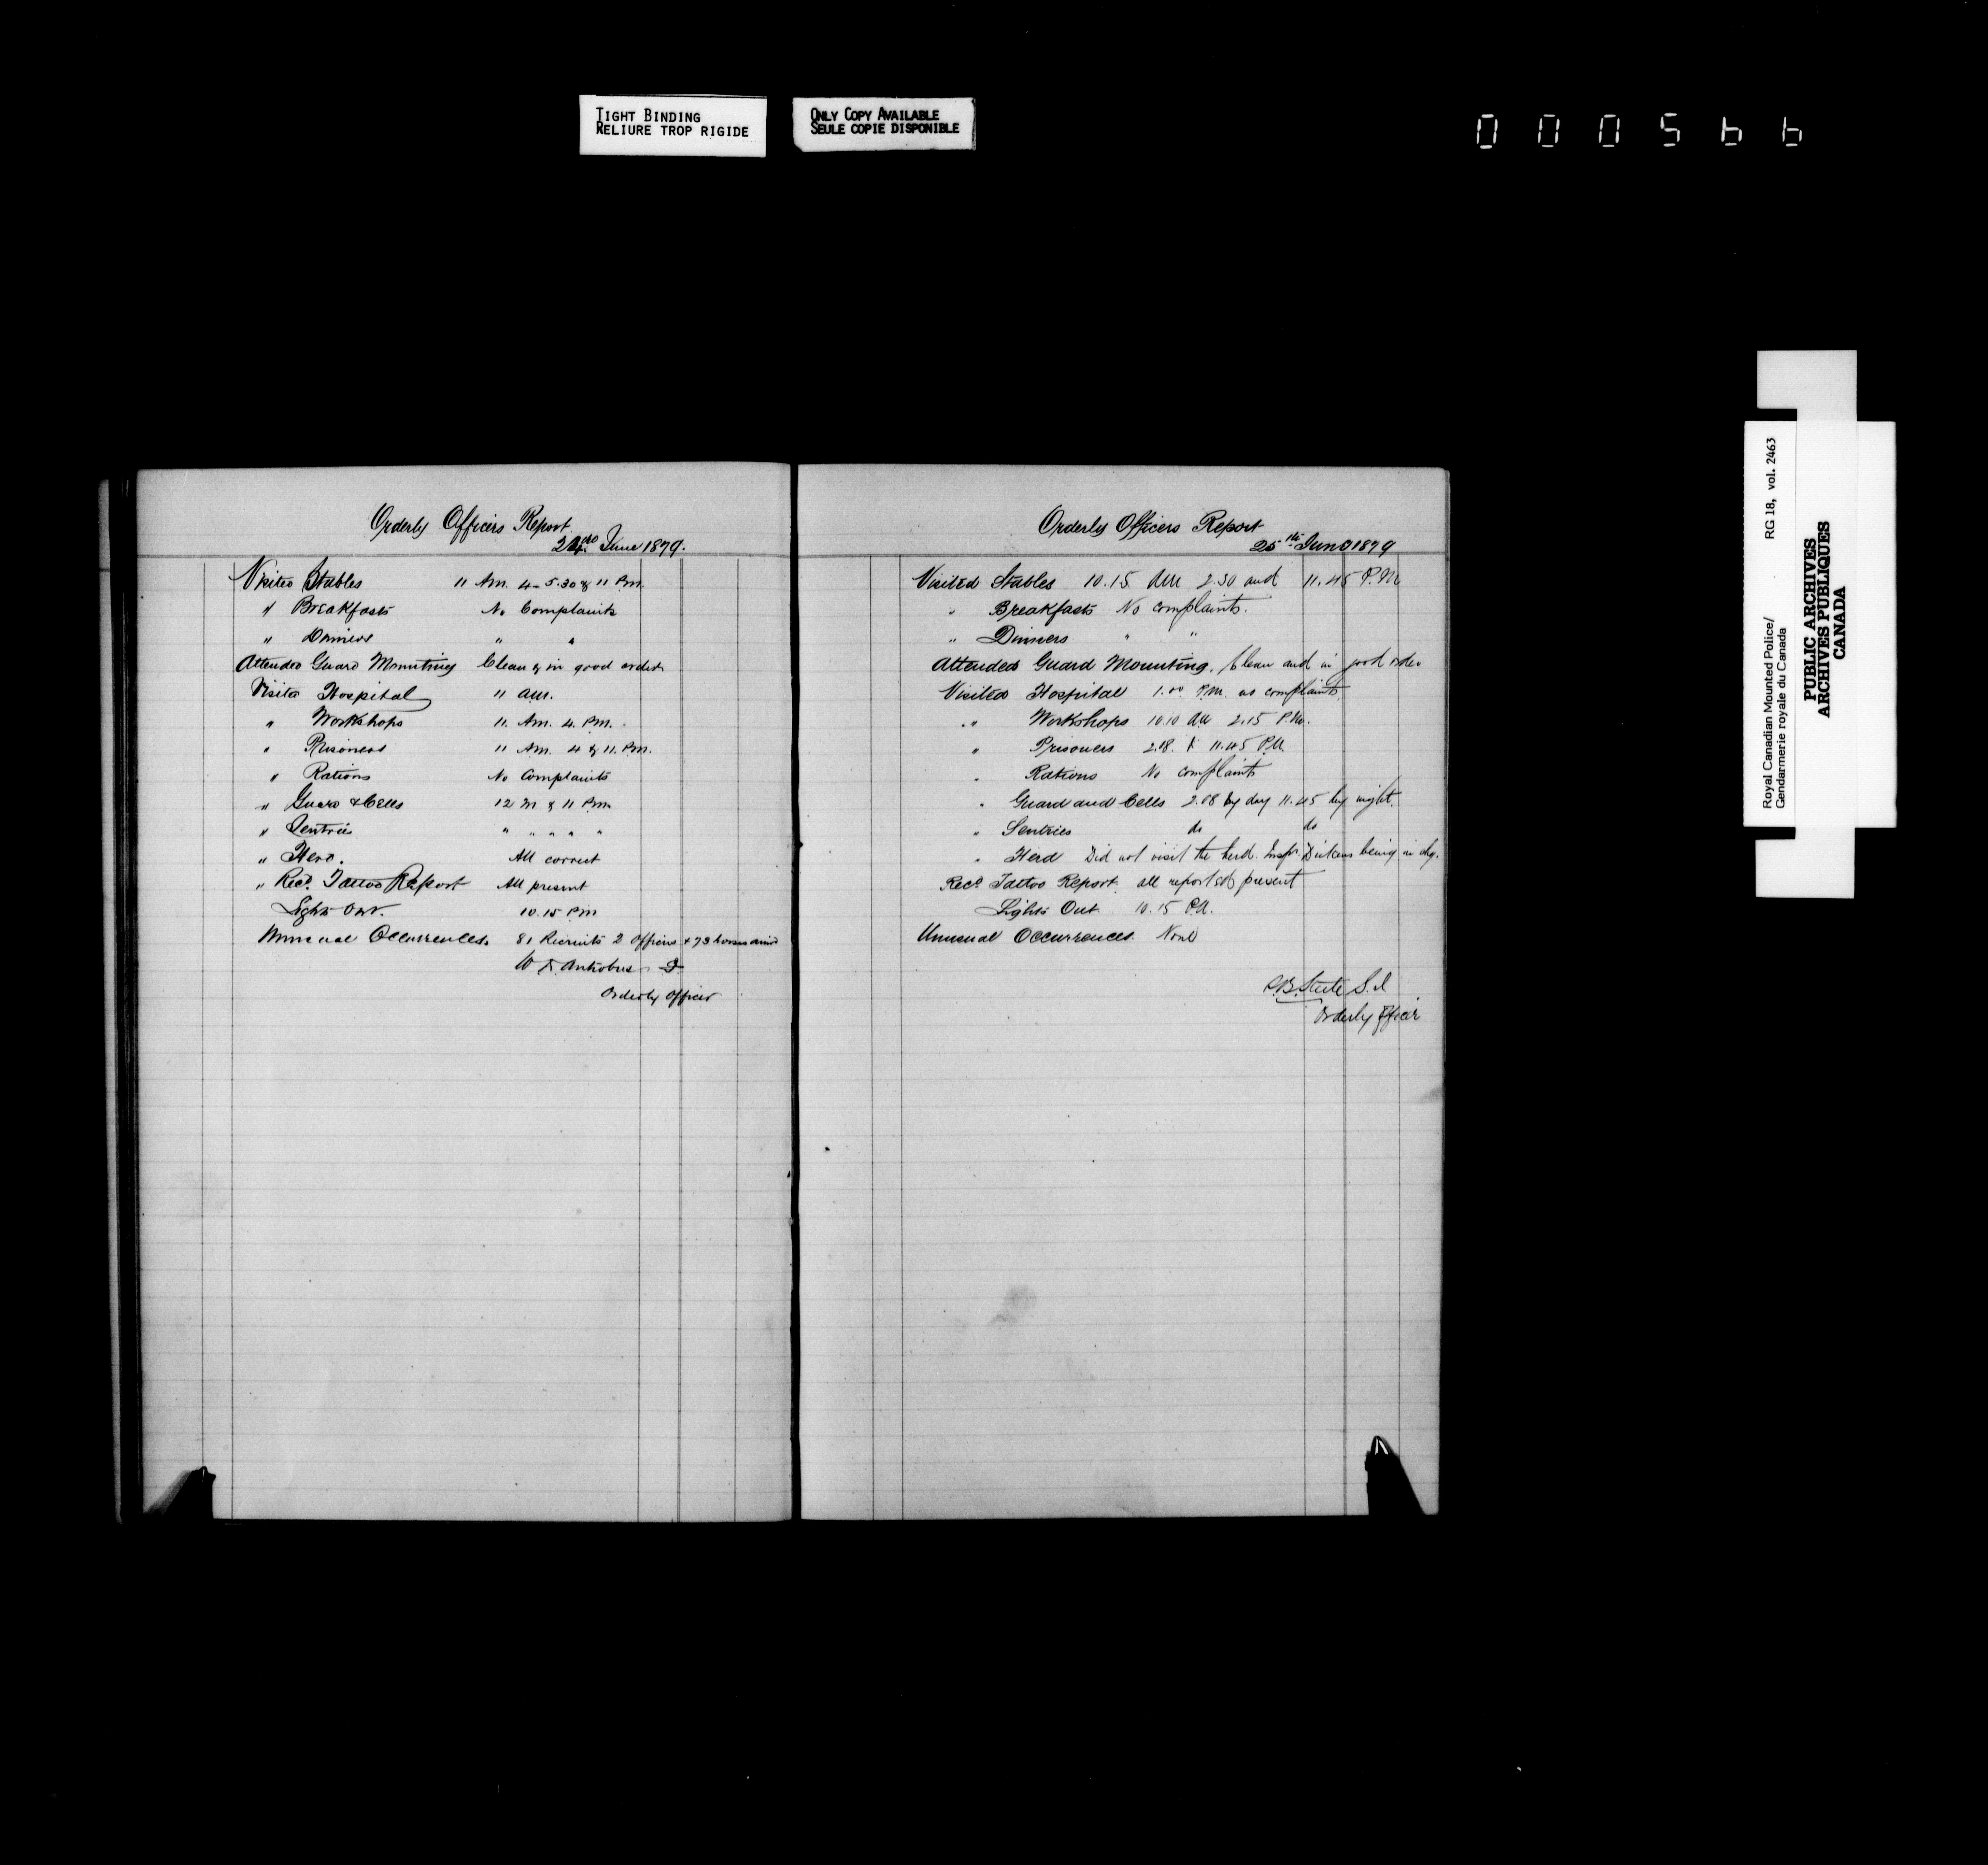 TIGHT BINDING
RELIURE TROP RIGIDE
ONLY COPY AVAILABLE
SEULE COPIE DISPONIBLE
000566
Orderly Officers Report
24 June 1879.
Visited Stables 11 Am. 4 - 5.30 & 11 Pm.
" Breakfasts No Complaints
" Dinners " "
Attended Guard Mounting Clean & in good order
Visited Hospital 11 am.
" Workshops 11. Am. 4. Pm.
" Prisoners 11 Am. 4 & 11. Pm.
" Rations No Complaints
" Guard & Cells 12 m & 11 Pm
" Sentries " " " " "
" Herd. All correct
" Recd. Tattoo Report All present
Lights Out. 10.15 Pm
Unusual Occurrences. 81 Recruits 2 Officers + 73 horses
W D Antrobus
Orderly Officer
Orderly Officers Report
25th June 1879
Visited Stables 10.15 AM 2.30 and 11.45 P.M
" Breakfasts No complaints.
" Dinners " "
Attended Guard Mounting. Clean and in good order
Visited Hospital 1.00 P.M. no complaints
" Workshops 10.10 AM 2.15 P.M.
" Prisoners 2.18. & 11.45 P.M.
" Rations No complaints
" Guard and Cells 2.08 by day 11.45 by night.
" Sentries do do
" Herd Did not visit the herd. Inspr. Dickens being in chg.
Recd Tattoo Report. all reported present
Lights Out 10.15 P.M.
Unusual Occurrences. None
S.I
Orderly Officer
Royal Canadian Mounted Police/
Gendarmerie royale du Canada
RG 18, vol. 2463
PUBLIC ARCHIVES
ARCHIVES PUBLIQUES
CANADA